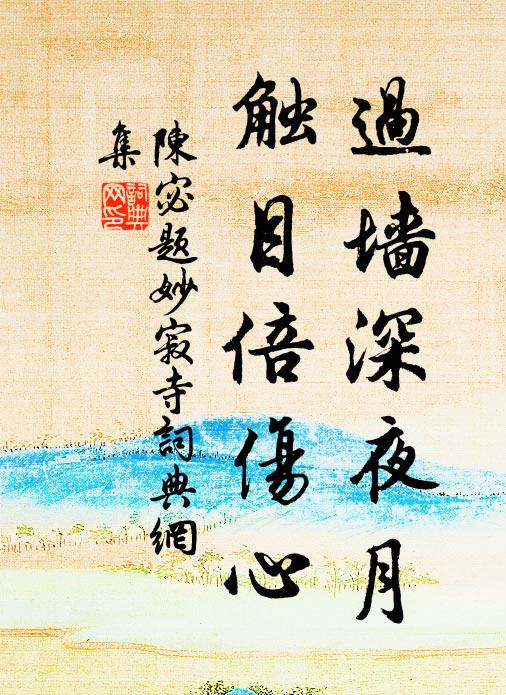 過墙深夜月
触目倍傷心
陳宓題妙寂寺詞典網
集
詞典网印